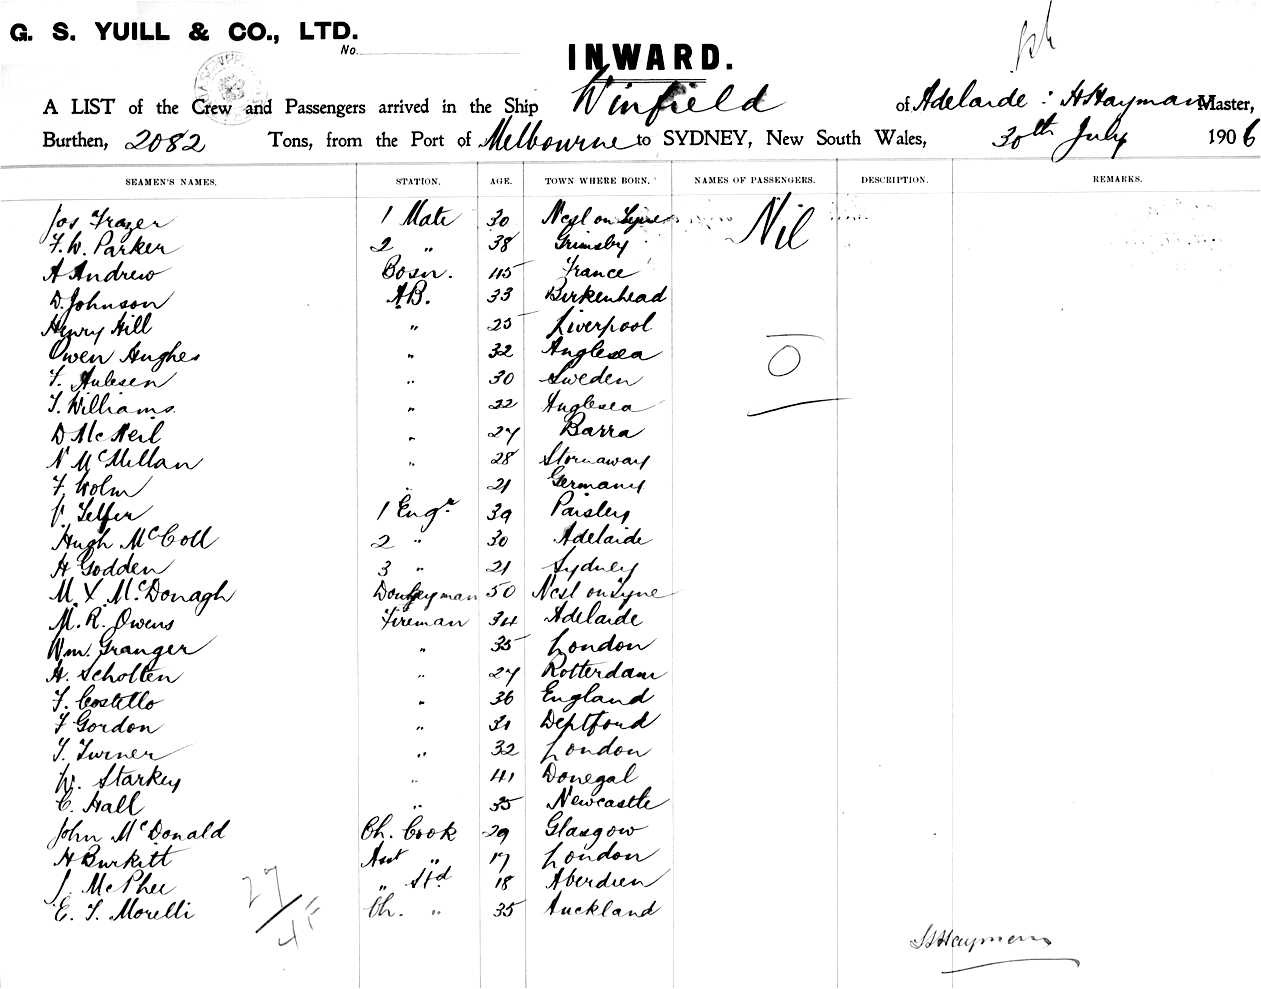 G. S. YUILL & CO., LTD.
No.
INWARD.
A LIST of the Crew and Passengers arrived in the Ship Winfield of Adelaide : H Hayman Master,
Burthen, 2082 Tons, from the Port of Melbourne to SYDNEY, New South Wales, 30th July 1906
SEAMEN'S NAMES. STATION. AGE. TOWN WHERE BORN. NAMES OF PASSENGERS. DESCRIPTION. REMARKS.
Jos Frazer 1 Mate 30 Ncsl on Tyne Nil
F. W. Parker 2 " 38 Grimsby
A Andrew Bosn. 45 France
D. Johnson A.B. 33 Birkenhead
Henry Hill " 25 Liverpool
Owen Hughes " 32 Anglesea
F. " 30 Sweden
T. Williams " 22 Anglesea
D McNeil " 27 Barra
N McMillan " 28 Stornaway
F. Holm " 21 Germany
Telfer 1 Engr 39 Paisley
Hugh McColl 2 " 30 Adelaide
H Godden 3 " 21 Sydney
M. X McDonagh Donkeyman 50 Ncsl on Tyne
M. R. Owens Fireman 34 Adelaide
Wm. Granger " 35 London
H. Scholten " 27 Rotterdam
T. Costello " 36 England
F Gordon " 31 Deptford
T. Turner " 32 London
W. Starkey " 41 Donegal
C. Hall " 35 Newcastle
John McDonald Ch. Cook 29 Glasgow
H Burkitt Asst " 17 London
J. McPhee " Std 18 Aberdeen
E. T. Morelli Ch. " 35 Auckland
27
H Hayman